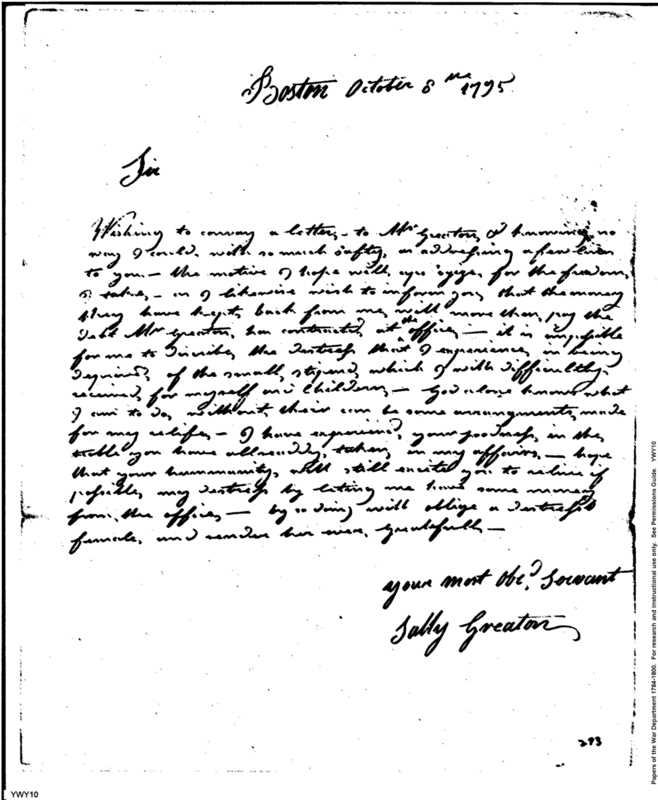 Boston October 8th 1795
Sir
Wishing to convay a letter, to Mr Greaton, & knowing no
way I could, with so much safty, as adressing a few lines
to you — the motive I hope will for the freedom,
I take, — as I likewise wish to inform you, that the money
they have kept, back from me, will more then, pay the
debt Mr Greaton, has contracted, at the office, — it is impossible
for me to discribe, the destress that I experience, in being
deprived, of the small, stipend, which I with difficulty,
received, for myself and Children, — God alone knows what
I am to do, without, their can be some arangments, made
for my relife, — I have experienced, your goodness, in the
you have allready, taken, in my affairs, — hope
that your hummanity, will still excite you to relive if
possible, my destress by leting me have some money
from, the office, — by so doing will oblige a destress'd
female, and render her ever, Gratefull —
your most Obet. Servant
Sally Greaton
293
YWY10
Papers of the War Department 1784-1800. For research and instructional use only. See Permissions Guide. YWY10